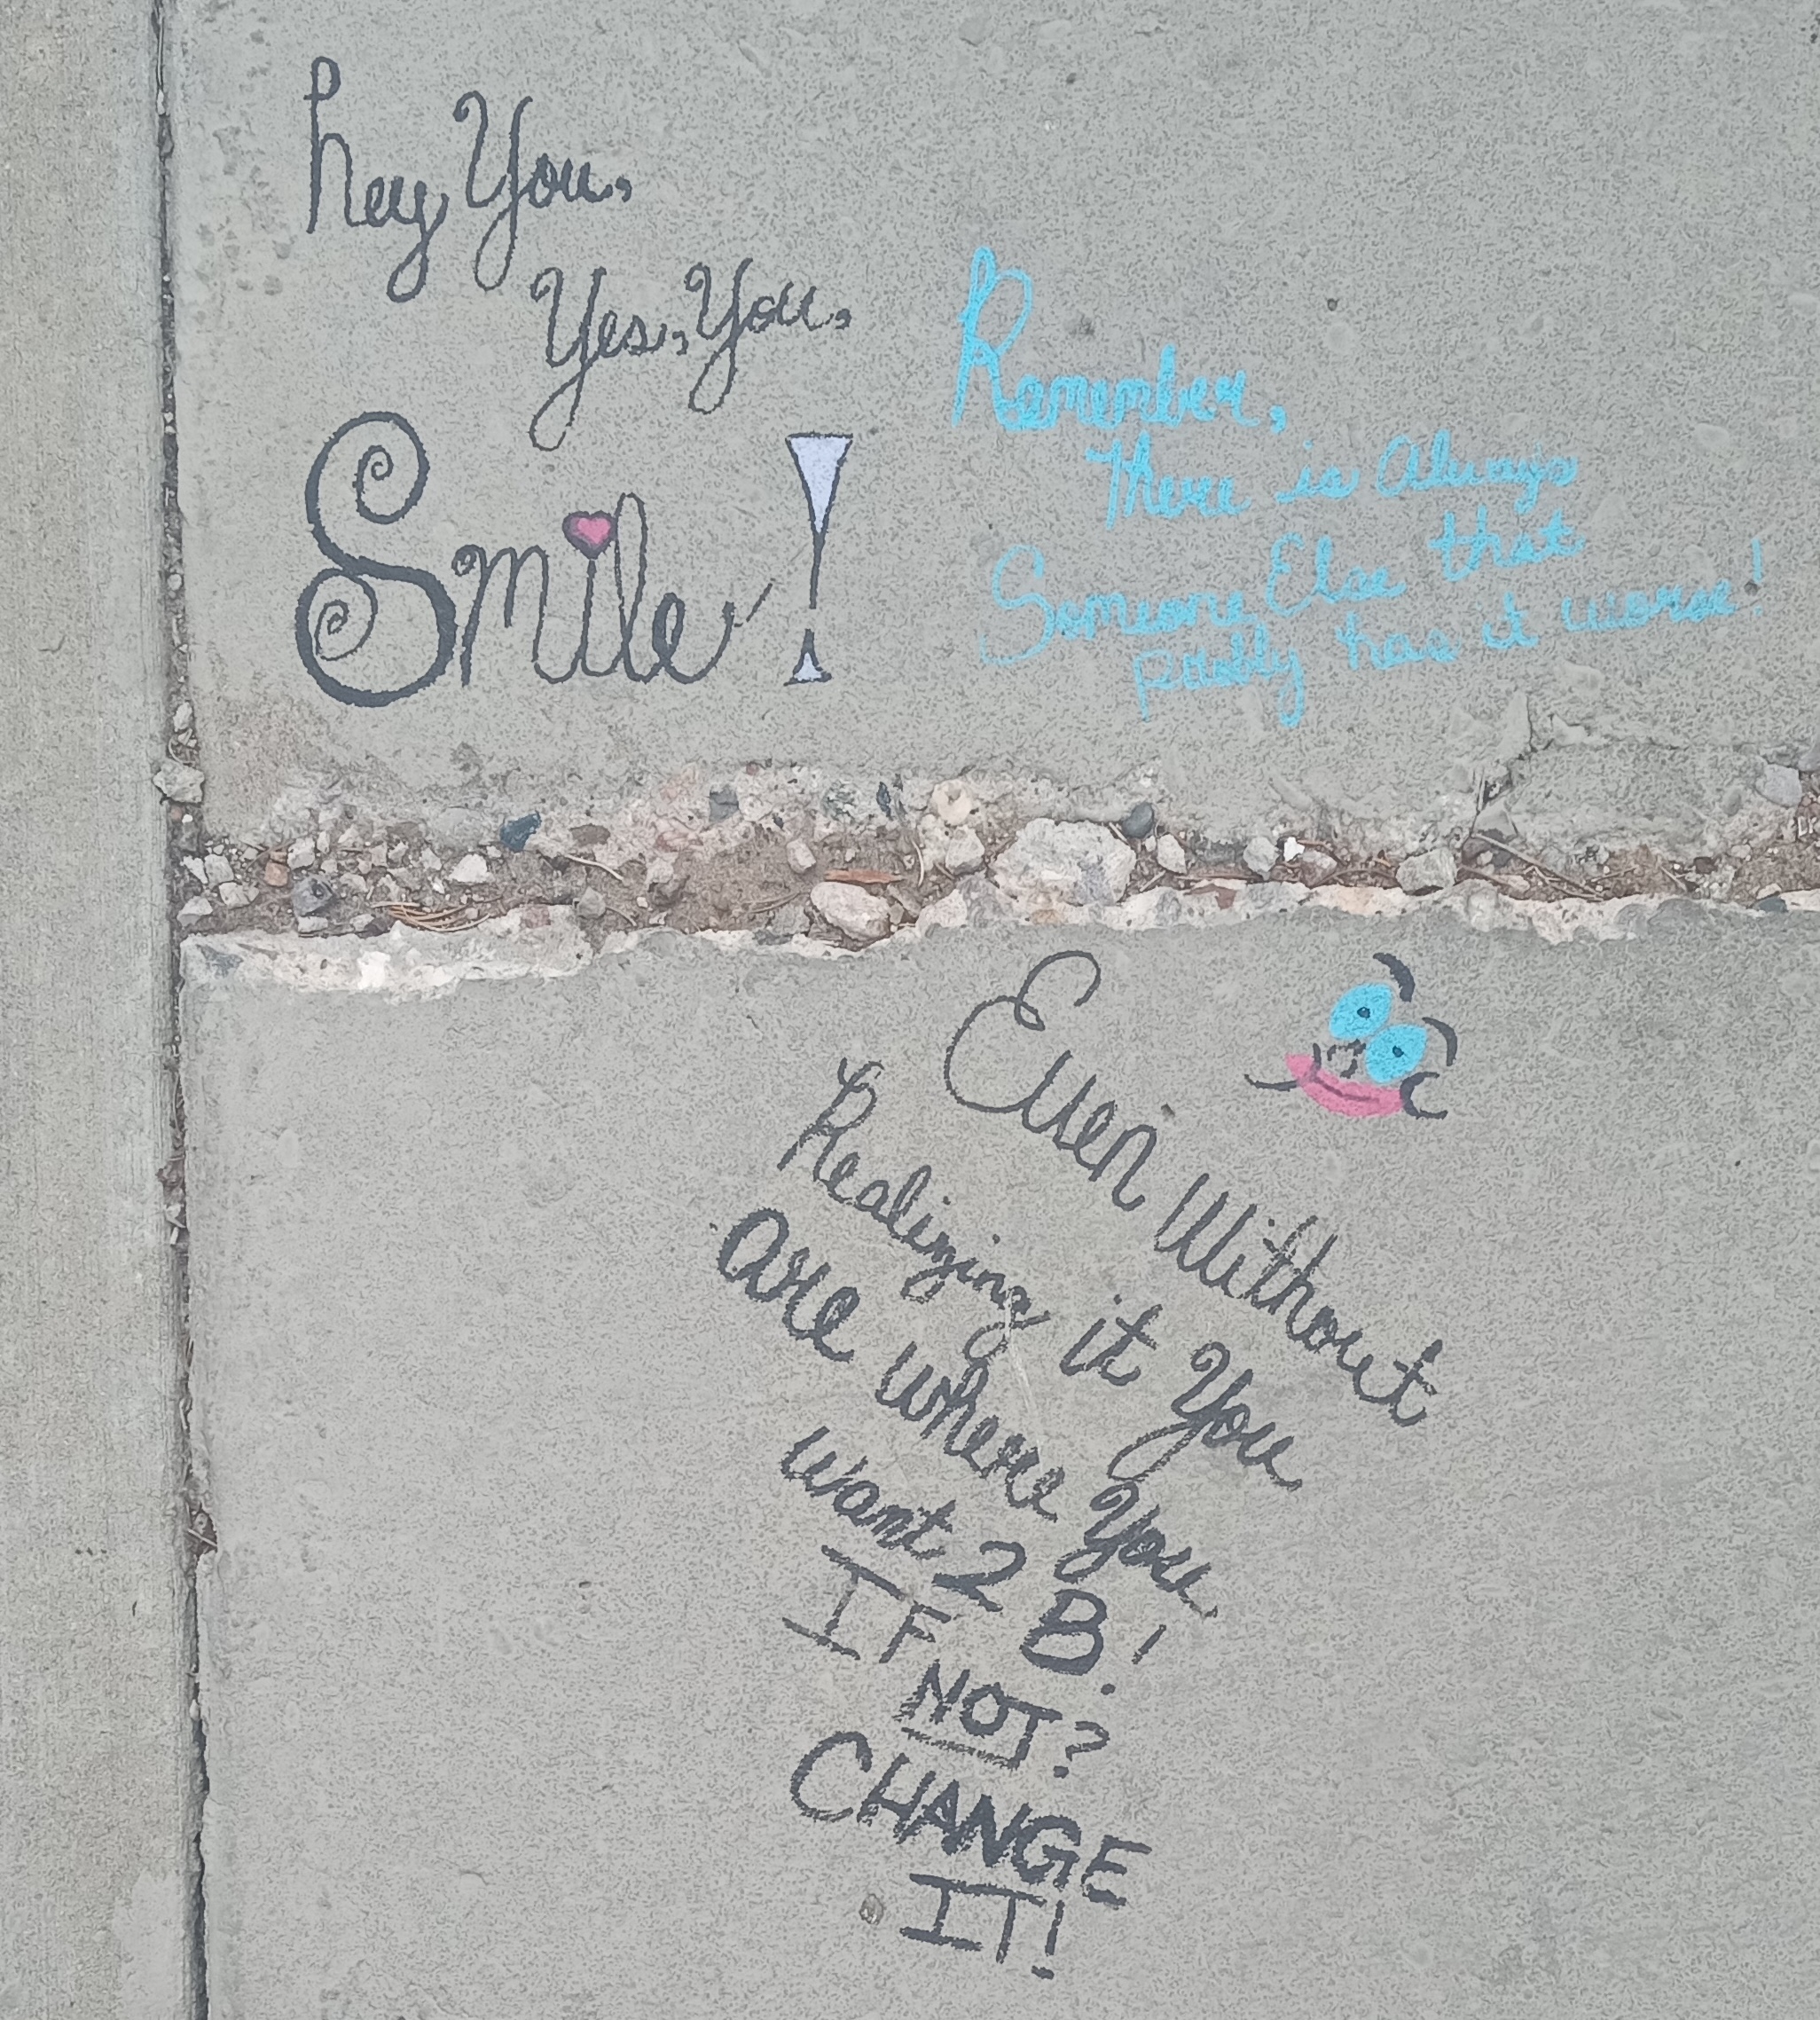 hey, You,
Yes, You,
Smile!
Remember,
There is Always
Someone Else that
probly has it worse!
Even Without
Realizing it You
are where You
want 2 B!
IF
NOT?
CHANGE
IT!